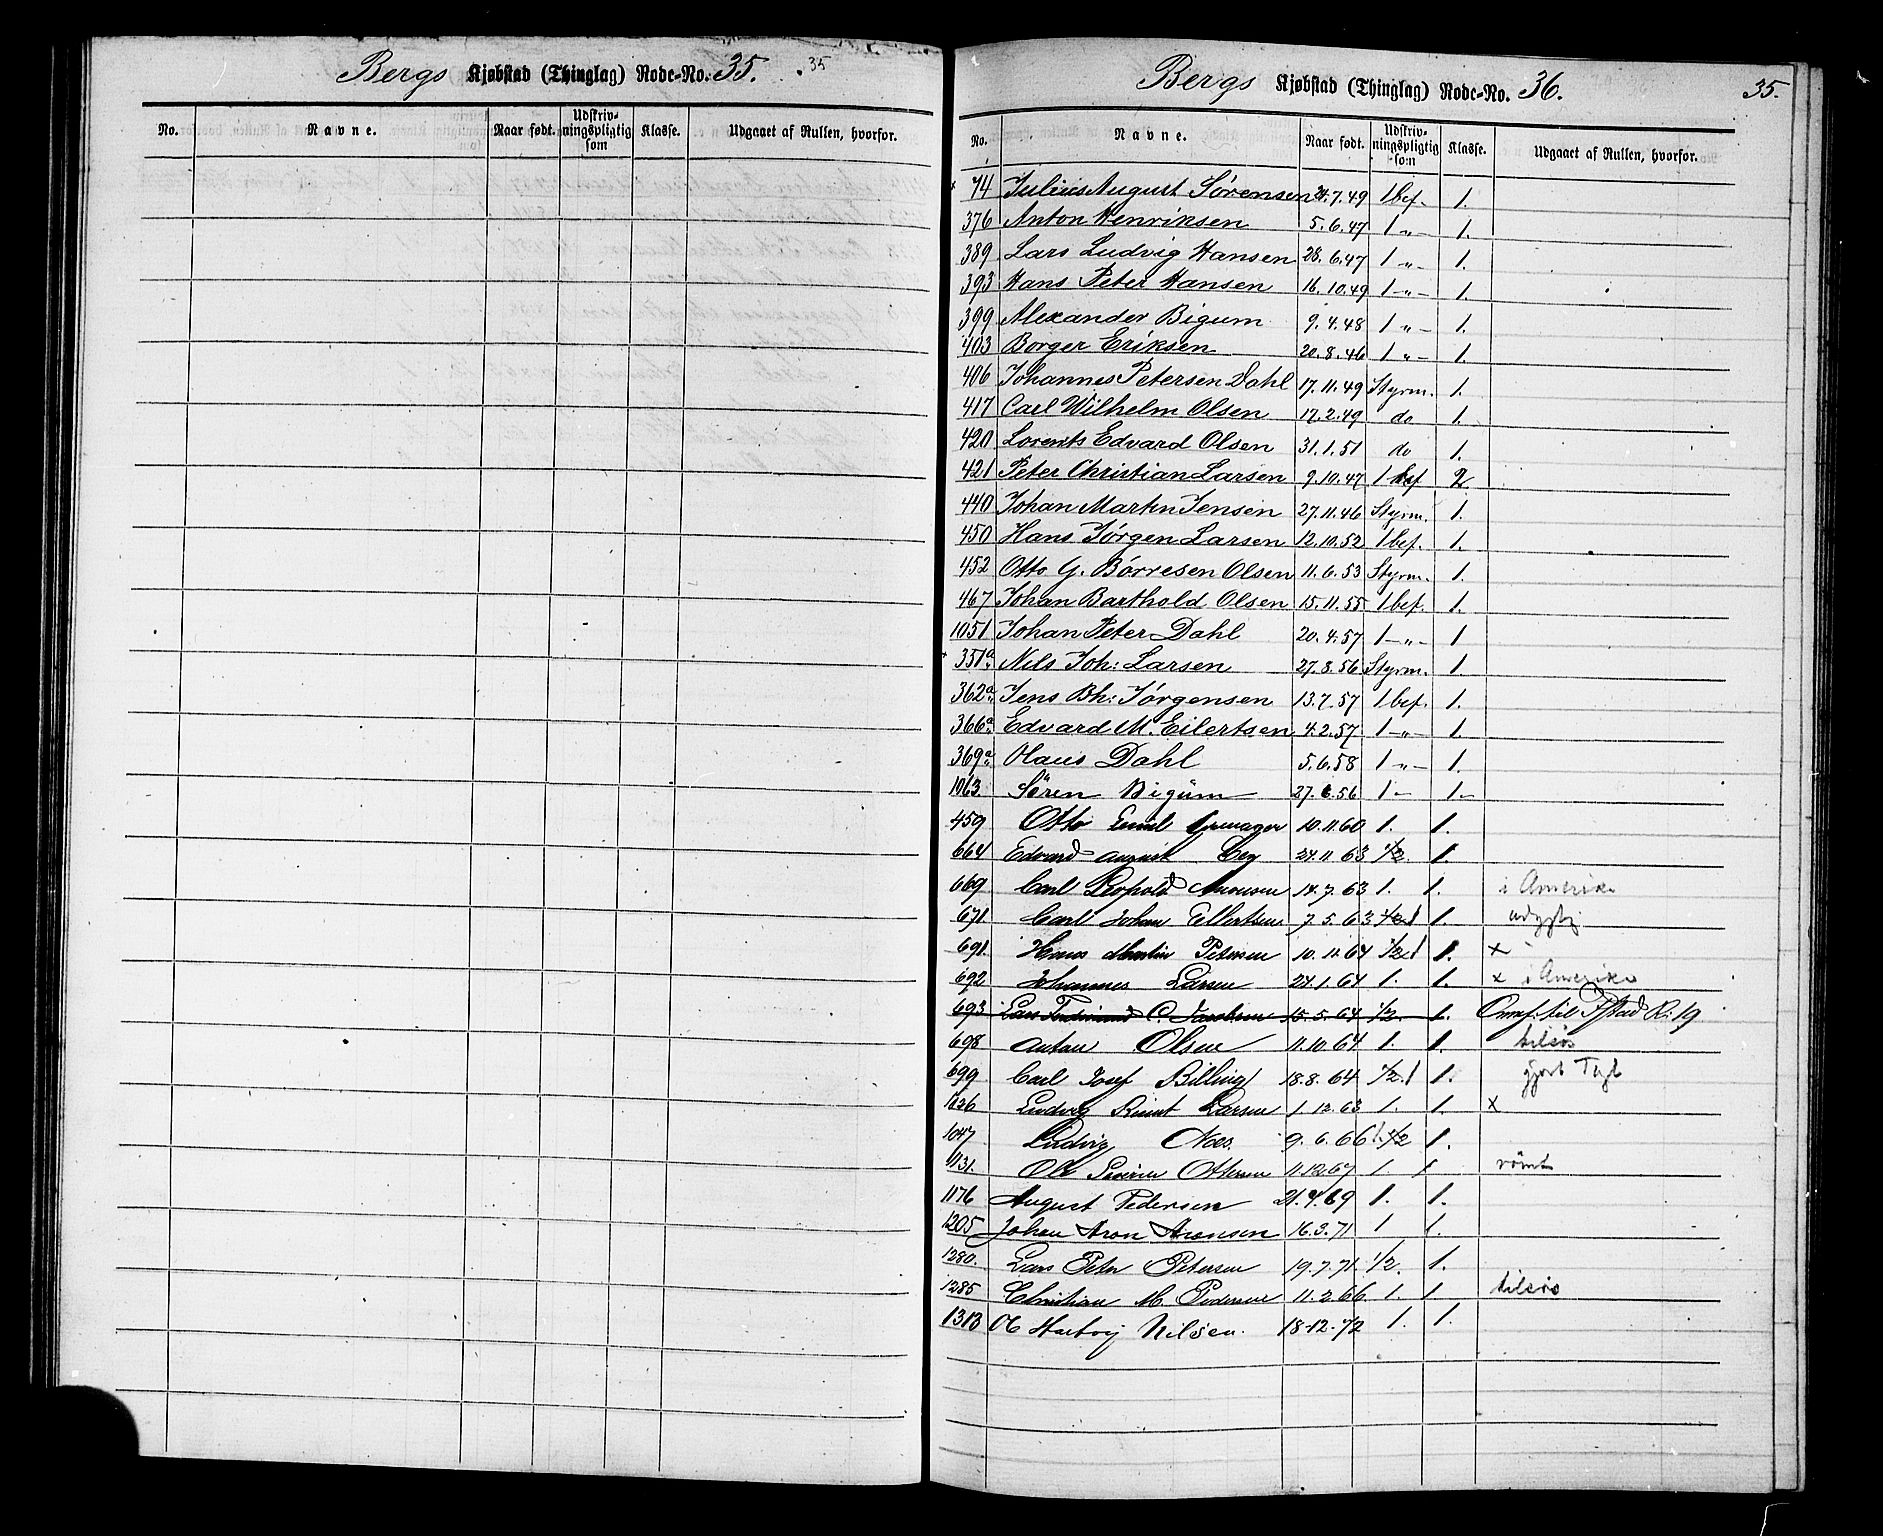 Bergs Kjøbstad (Thinglag) Rode-No. 35. 35
No. Navne. Naar født. Udskriv-ningspligtig som Klasse. Udgaaet af Rullen, hvorfor.
Bergs Kjøbstad (Thinglag) Rode-No. 36. 35.
No. Navne. Naar født. Udskriv-ningspligtig som Klasse. Udgaaet af Rullen, hvorfor.
74 Julius August Sørensen 24.7.49 1 bef. 1.
376 Anton Henriksen 5.6.47 1 -"- 1.
389 Lars Ludvig Hansen 28.6.47 1 -"- 1.
393 Hans Peter Hansen 16.10.49 1 -"- 1.
399 Alexander Bigum 9.4.48 1 -"- 1.
403 Borger Eriksen 20.8.46 1 -"- 1.
406 Johannes Petersen Dahl 17.11.49 Styrm. 1.
417 Carl Wilhelm Olsen 17.2.49 do 1.
420 Lorents Edvard Olsen 31.1.51 do 1.
421 Peter Christian Larsen 9.10.47 1 bef 2
440 Johan Martin Jensen 27.11.46 Styrm. 1.
450 Hans Jørgen Larsen 12.10.52 1 bef. 1.
452 Otto G. Børresen Olsen 11.6.53 Styrm. 1.
467 Johan Barthold Olsen 15.11.55 1 bef. 1.
1051 Johan Peter Dahl 20.4.57 1 -"- 1
351a Nils Joh: Larsen 27.8.56 Styrm. 1.
362a Jens Bh: Jørgensen 13.7.57 1 bef. 1.
366a Edvard M. Eilertsen 4.2.57 1 -"- 1.
369a Olaus Dahl 5.6.58 1 -"- 1.
1063 Søren Bigum 27.6.56 1 - 1 -
459 Otto Emil 10.11.60 1. 1.
664 Edvard August 24.11.63 1/2. 1.
669 Carl Leopold 14.7.63 1. 1. i Amerika
671 Carl Johan 7.5.63 1/2 1 1.
691. Hans Martin Petersen 10.11.64 1/2 1 1. x
692 Johannes Larsen 24.1.64 1. 1. x i Amerika
693 Lars Ferdinand C. Jacobsen 15.5.64 1/2. 1. Omf. til R: 19
698 Anton Olsen 11.10.64 1. 1. tilsøs
699 Carl Josef Billing 18.8.64 1/2. 1 1. gjort
1026 Ludvig Larsen 1.12.63 1. 1. x
1047 Ludvig Næs. 9.6.66 1. 1/2 1.
1131. Ole Severin Ottesen 11.12.67 1. 1 rømt
1176 August Pedersen 21.4.69 1. 1.
1205 Johan Aron Aronsen 16.3.71 1 1.
1280. Lars Peter Petersen 19.7.71 1/2. 1.
1285 Christian M. Pedersen 11.2.66 1. 1 tilsøs
1313 Ole Hartvig Nilsen. 18-12.72 1. 1.